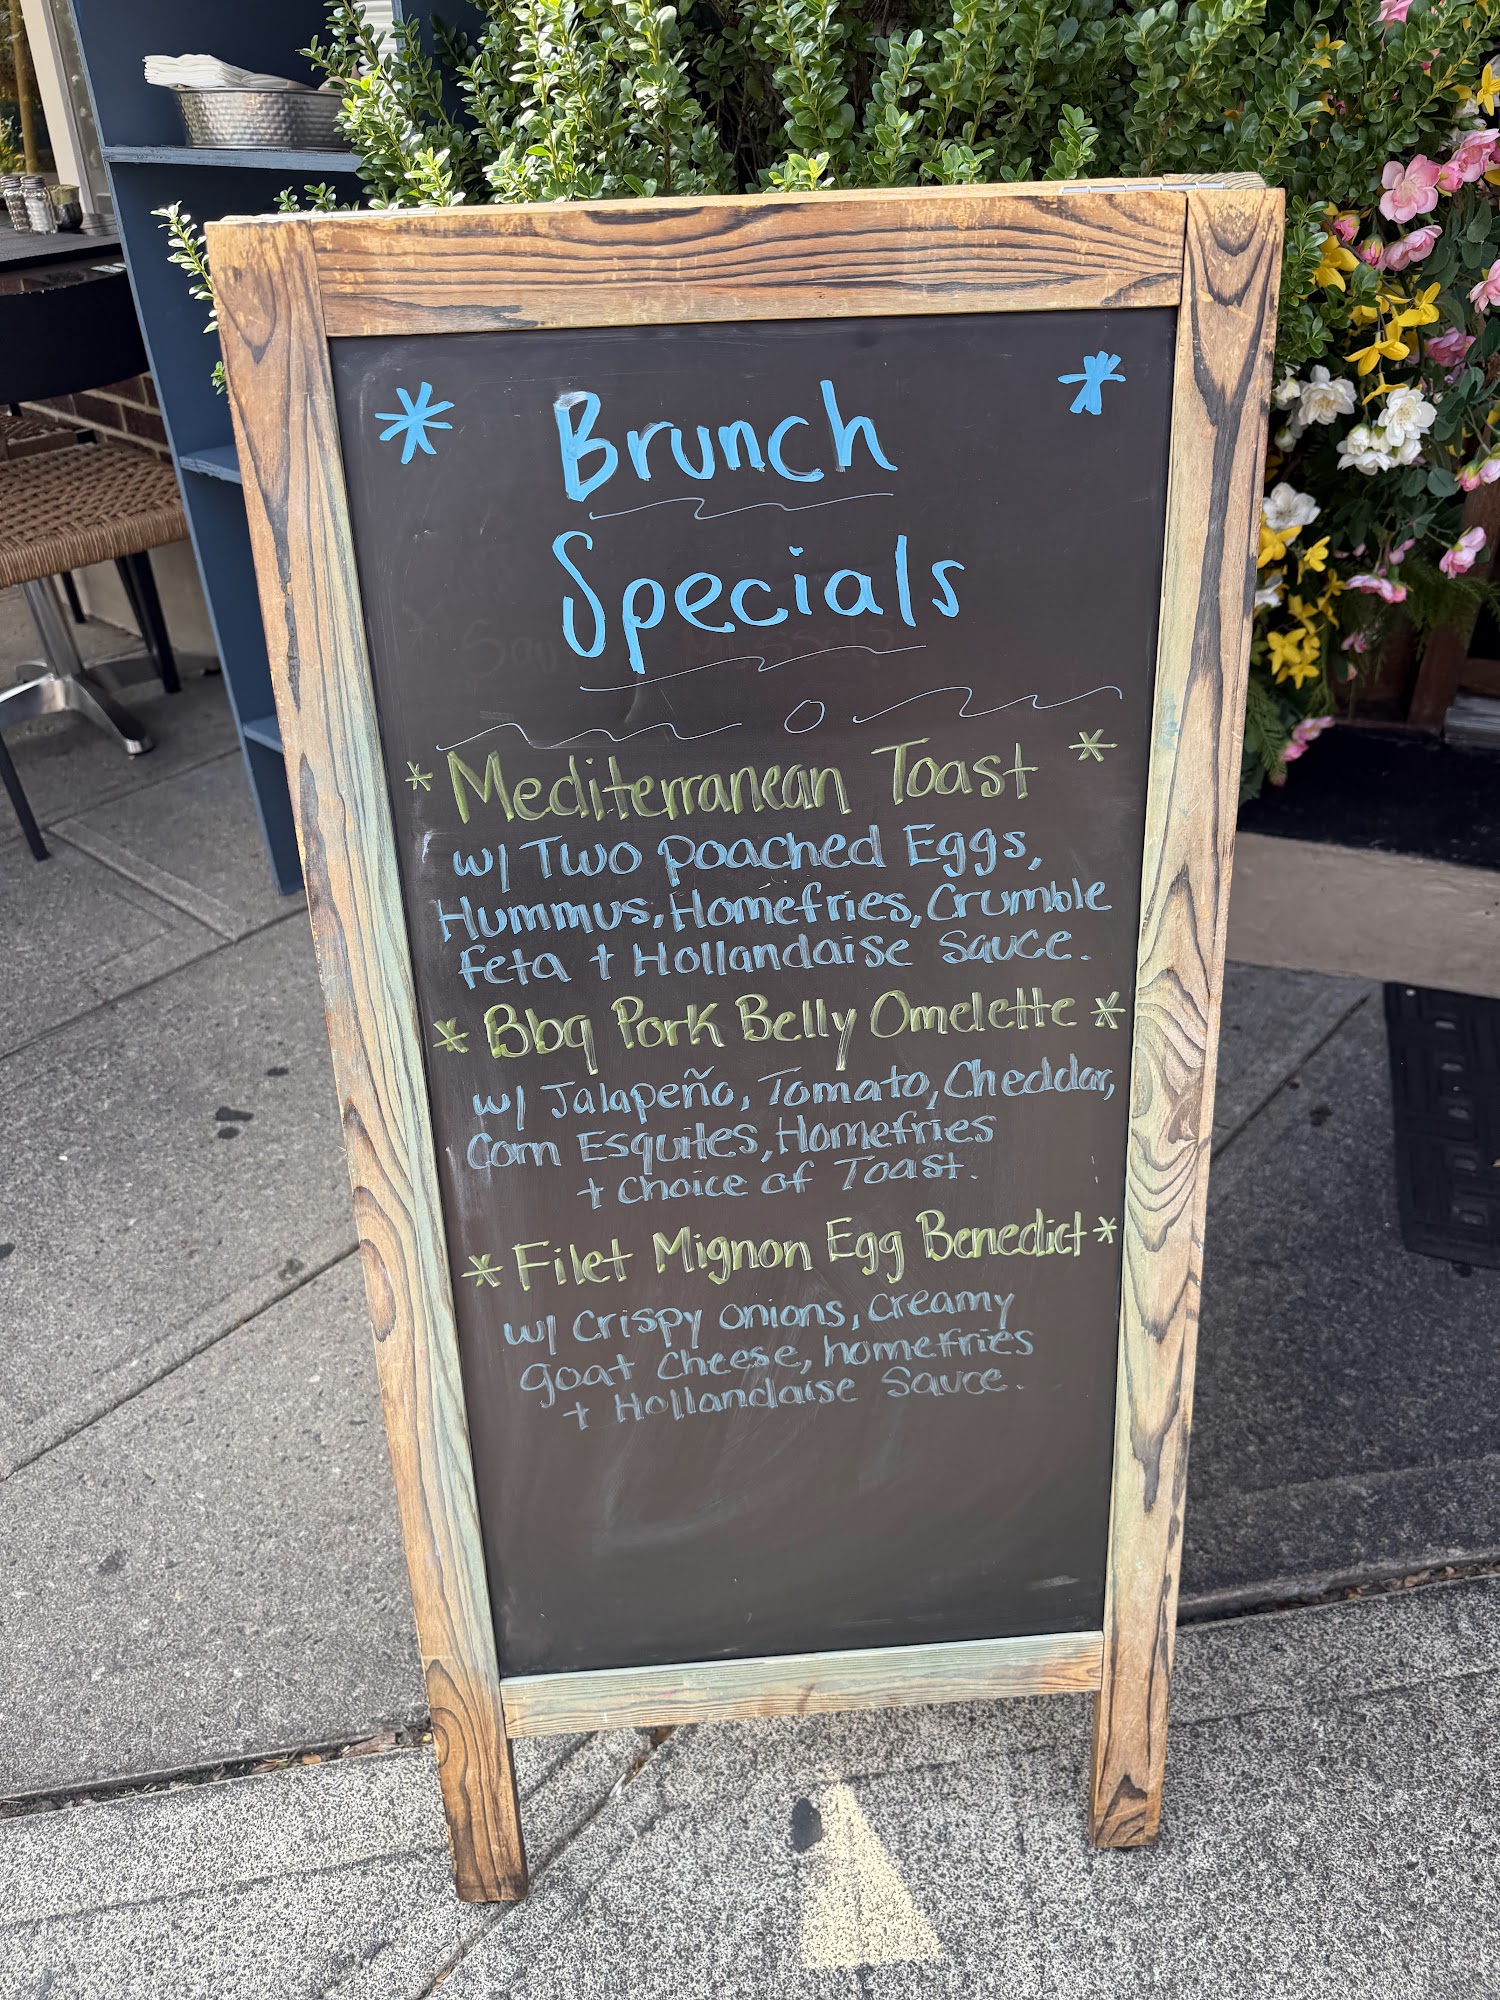 * Brunch *
Specials
* Mediterranean Toast *
w/ Two poached Eggs,
Hummus, Homefries, Crumble
feta + Hollandaise sauce.
* Bbq Pork Belly Omelette *
w/ Jalapeño, Tomato, Cheddar,
Corn Esquites, Homefries
+ choice of Toast.
* Filet Mignon Egg Benedict *
w/ crispy onions, creamy
goat cheese, homefries
+ Hollandaise sauce.